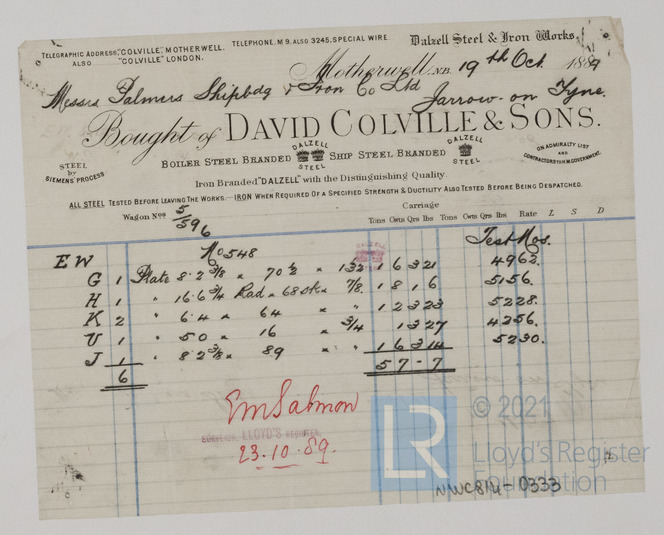 TELEGRAPHIC ADDRESS, "COLVILLE," MOTHERWELL. TELEPHONE, M 9, ALSO 3245, SPECIAL WIRE. Dalzell Steel & Iron Works,
ALSO "COLVILLE" LONDON.
Motherwell, N.B. 19th Oct. 1889
Messrs Palmers Shipbdg & Iron Co Ltd
Jarrow-on Tyne.
Bought of DAVID COLVILLE & SONS.
STEEL by SIEMENS' PROCESS
BOILER STEEL BRANDED DALZELL STEEL SHIP STEEL BRANDED DALZELL STEEL
ON ADMIRALTY LIST AND CONTRACTORS TO H.M. GOVERNMENT.
Iron Branded "DALZELL" with the Distinguishing Quality.
ALL STEEL TESTED BEFORE LEAVING THE WORKS.—IRON WHEN REQUIRED OF A SPECIFIED STRENGTH & DUCTILITY ALSO TESTED BEFORE BEING DESPATCHED.
Wagon Nos 5/596
Carriage
Tons Cwts Qrs lbs Tons Cwts Qrs lbs Rate L S D
No 548 Test Nos.
E W 4962.
G 1 Plate 8.2 3/8 × 70 1/2 × 5156.
H 1 " 16.6 3/4 Rad × 68 × 7/8 1 8 1 6 5228.
K 2 " 6.4 × 64 × " 1 2 3 23 4256.
U 1 " 50 × 16 × 3/4 1 3 27 5230.
J 1 " 8.2 3/8 × 89 × " 1 6 3 14
6 5 7 - 7
EM Salmon
SURVEYOR, LLOYD'S REGISTER,
23.10.89.
LR
© 2021
Lloyd's Register
Foundation
NWC814-0333